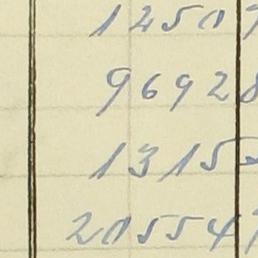 12507
96928
1315
205547